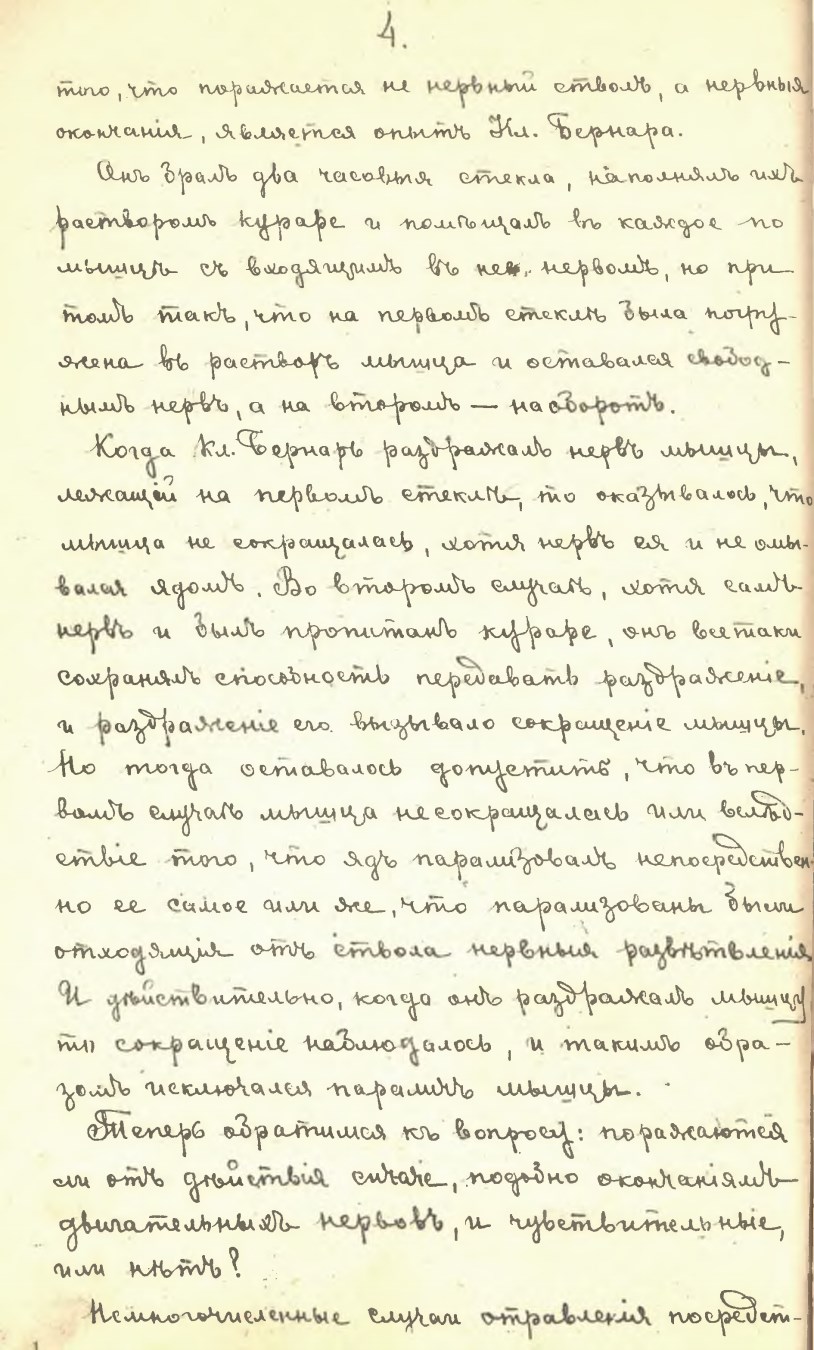 4.
того, что поражается не нервный стволъ, а нервныя
окончанія, является опытъ Кл. Бернара.
Онъ бралъ два часовыя стекла, наполнялъ ихъ
растворомъ кураре и помѣщалъ въ каждое по
мышцѣ съ входящимъ въ нее нервомъ, но при
томъ такъ, что на первомъ стеклѣ была погру-
жена въ растворъ мышца и оставался свобод-
нымъ нервъ, а на второмъ — наоборотъ.
Когда Кл. Бернаръ раздражалъ нервъ мышцы,
лежащей на первомъ стеклѣ, то оказывалось, что
мышца не сокращалась, хотя нервъ ея и не омы-
вался ядомъ. Во второмъ случаѣ, хотя самъ
нервъ и былъ пропитанъ кураре, онъ всетаки
сохранялъ способность передавать раздраженіе,
и раздраженіе его вызывало сокращеніе мышцы.
Но тогда оставалось допустить, что въ пер-
вомъ случаѣ мышца не сокращалась или вслѣд-
ствіе того, что ядъ парализовалъ непосредствен-
но ее самое или же, что парализованы были
отходящія отъ ствола нервныя развѣтвленія
И дѣйствительно, когда онъ раздражалъ мышцу
то сокращеніе наблюдалось, и такимъ обра-
зомъ исключался параличъ мышцы.
Теперь обратимся къ вопросу: поражаются
ли отъ дѣйствія кураре, подобно окончаніямъ
двигательныхъ нервовъ, и чувствительные,
или нѣтъ?
Немногочисленные случаи отравленія посредст-